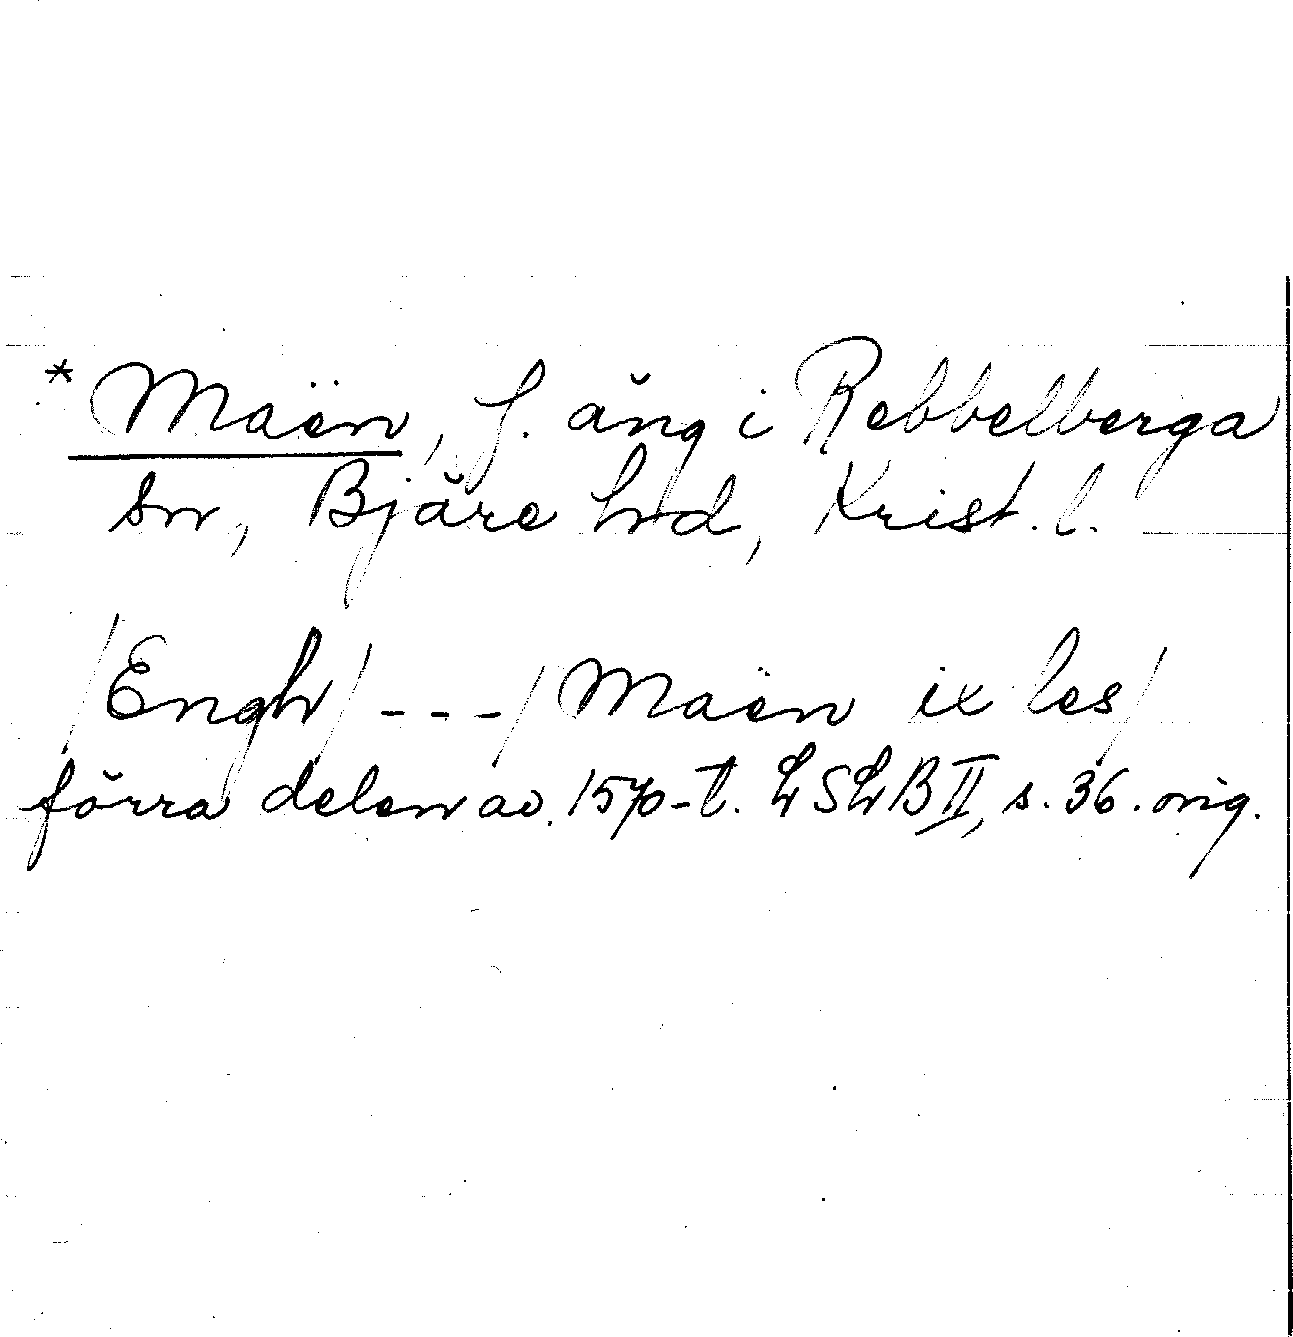 * Maën, f. äng i Rebbelberga
sn, Bjäre hd, Krist. l.
/Engh/ - - - / Maën ix les /
förra delen av 1570-t. LSLB II, s. 36. orig.